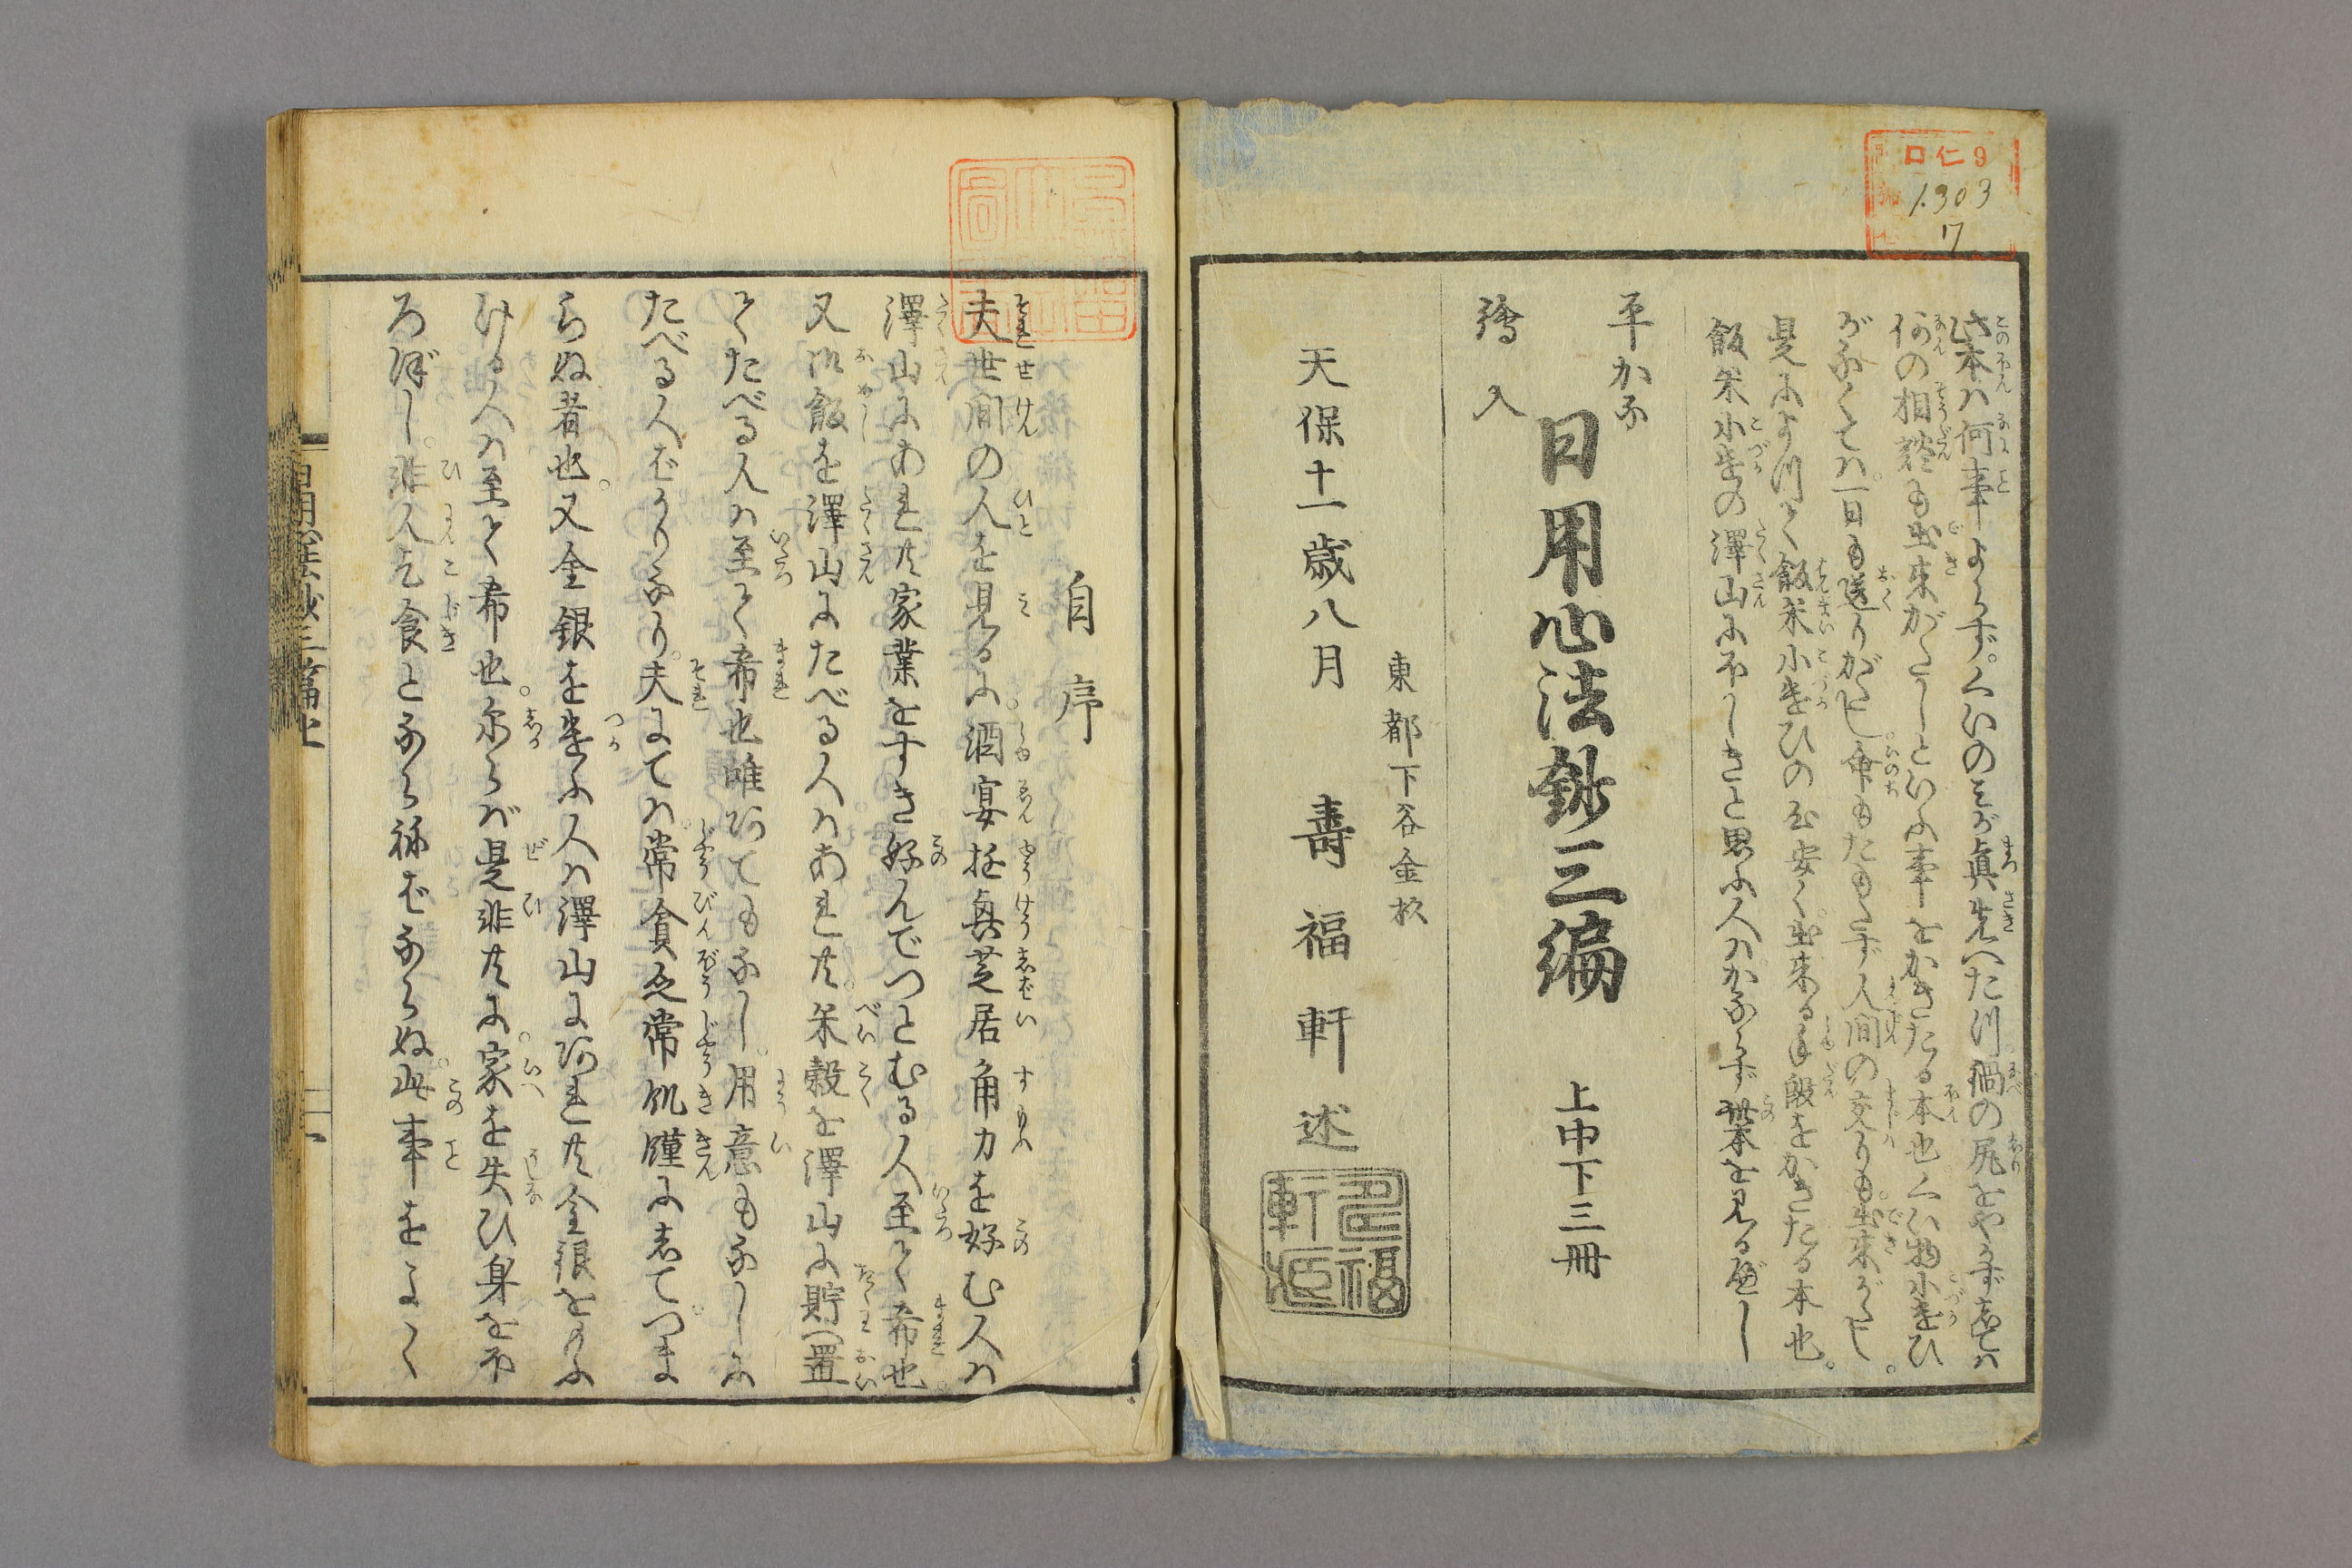 ロ仁9
1303
17
此本ハ何事よらず。くいのミが眞先へた川。禍の尻をやらず志てハ
何の相談も出来がたしといふ事をかきたる本也。くい物小遣ひ
がなくてハ。一日も送りがたし。命もたもたず人間の交りも。出来がたし。
是によ川て飯米小遣ひの心安く。出来る手段をかきたる本也。
飯米小遣の澤山にほしきと思ふ人ハ。かならず此本を見るべし
平かな
繪入
日用心法鈔三編
上中下三冊
東都下谷金杉
天保十一歳八月
壽福軒述
自序
夫世間の人を見るに。酒宴遊興芝居角力を好む人ハ
澤山にあれ共家業をすき好んでつとむる人至て希也。
又御飯を澤山にたべる人ハあれ共。米穀を澤山に貯へ置
てたべる人ハ至て希也唯何てもなし。用意もなしに
たべる人ばかりなり。夫にてハ。常貧乏常飢饉に志て。つまり
らぬ者也。又金銀を遣ふ人ハ澤山に何れ共金銀をのふ
ける人ハ至て希也。尓らば是非共に。家を失ひ身をほ
ろぼし。非人乞食とならねばならぬ。此事をよく
日用心法鈔三篇上